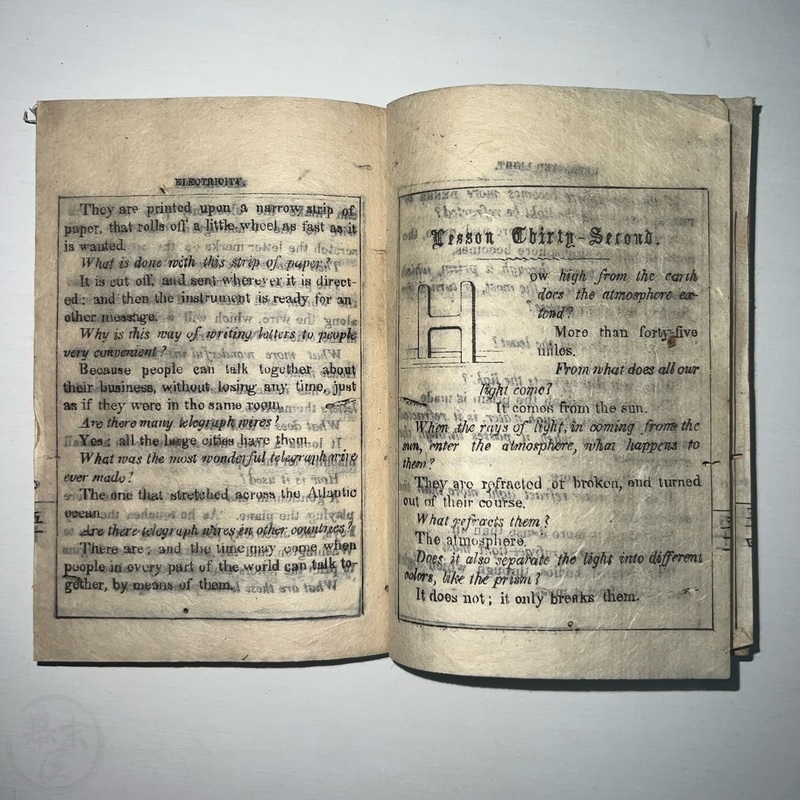 ELECTRICITY.
They are printed upon a narrow strip of
paper, that rolls off a little wheel as fast as it
is wanted.
What is done with this strip of paper?
It is cut off, and sent wherever it is direct-
ed; and then the instrument is ready for an
other message.
Why is this way of writing letters to people
very convenient?
Because people can talk together about
their business, without losing any time, just
as if they were in the same room.
Are there many telegraph wires?
Yes; all the large cities have them.
What was the most wonderful telegraph wire
ever made?
The one that stretched across the Atlantic
ocean.
Are there telegraph wires in other countries?
There are; and the time may come when
people in every part of the world can talk to-
gether, by means of them.
Lesson Thirty-Second.
How high from the earth
does the atmosphere ex-
tend?
More than forty-five
miles.
From what does all our
light come?
It comes from the sun.
When the rays of light, in coming from the
sun, enter the atmosphere, what happens to
them?
They are refracted or broken, and turned
out of their course.
What refracts them?
The atmosphere.
Does it also separate the light into different
colors, like the prism?
It does not; it only breaks them.